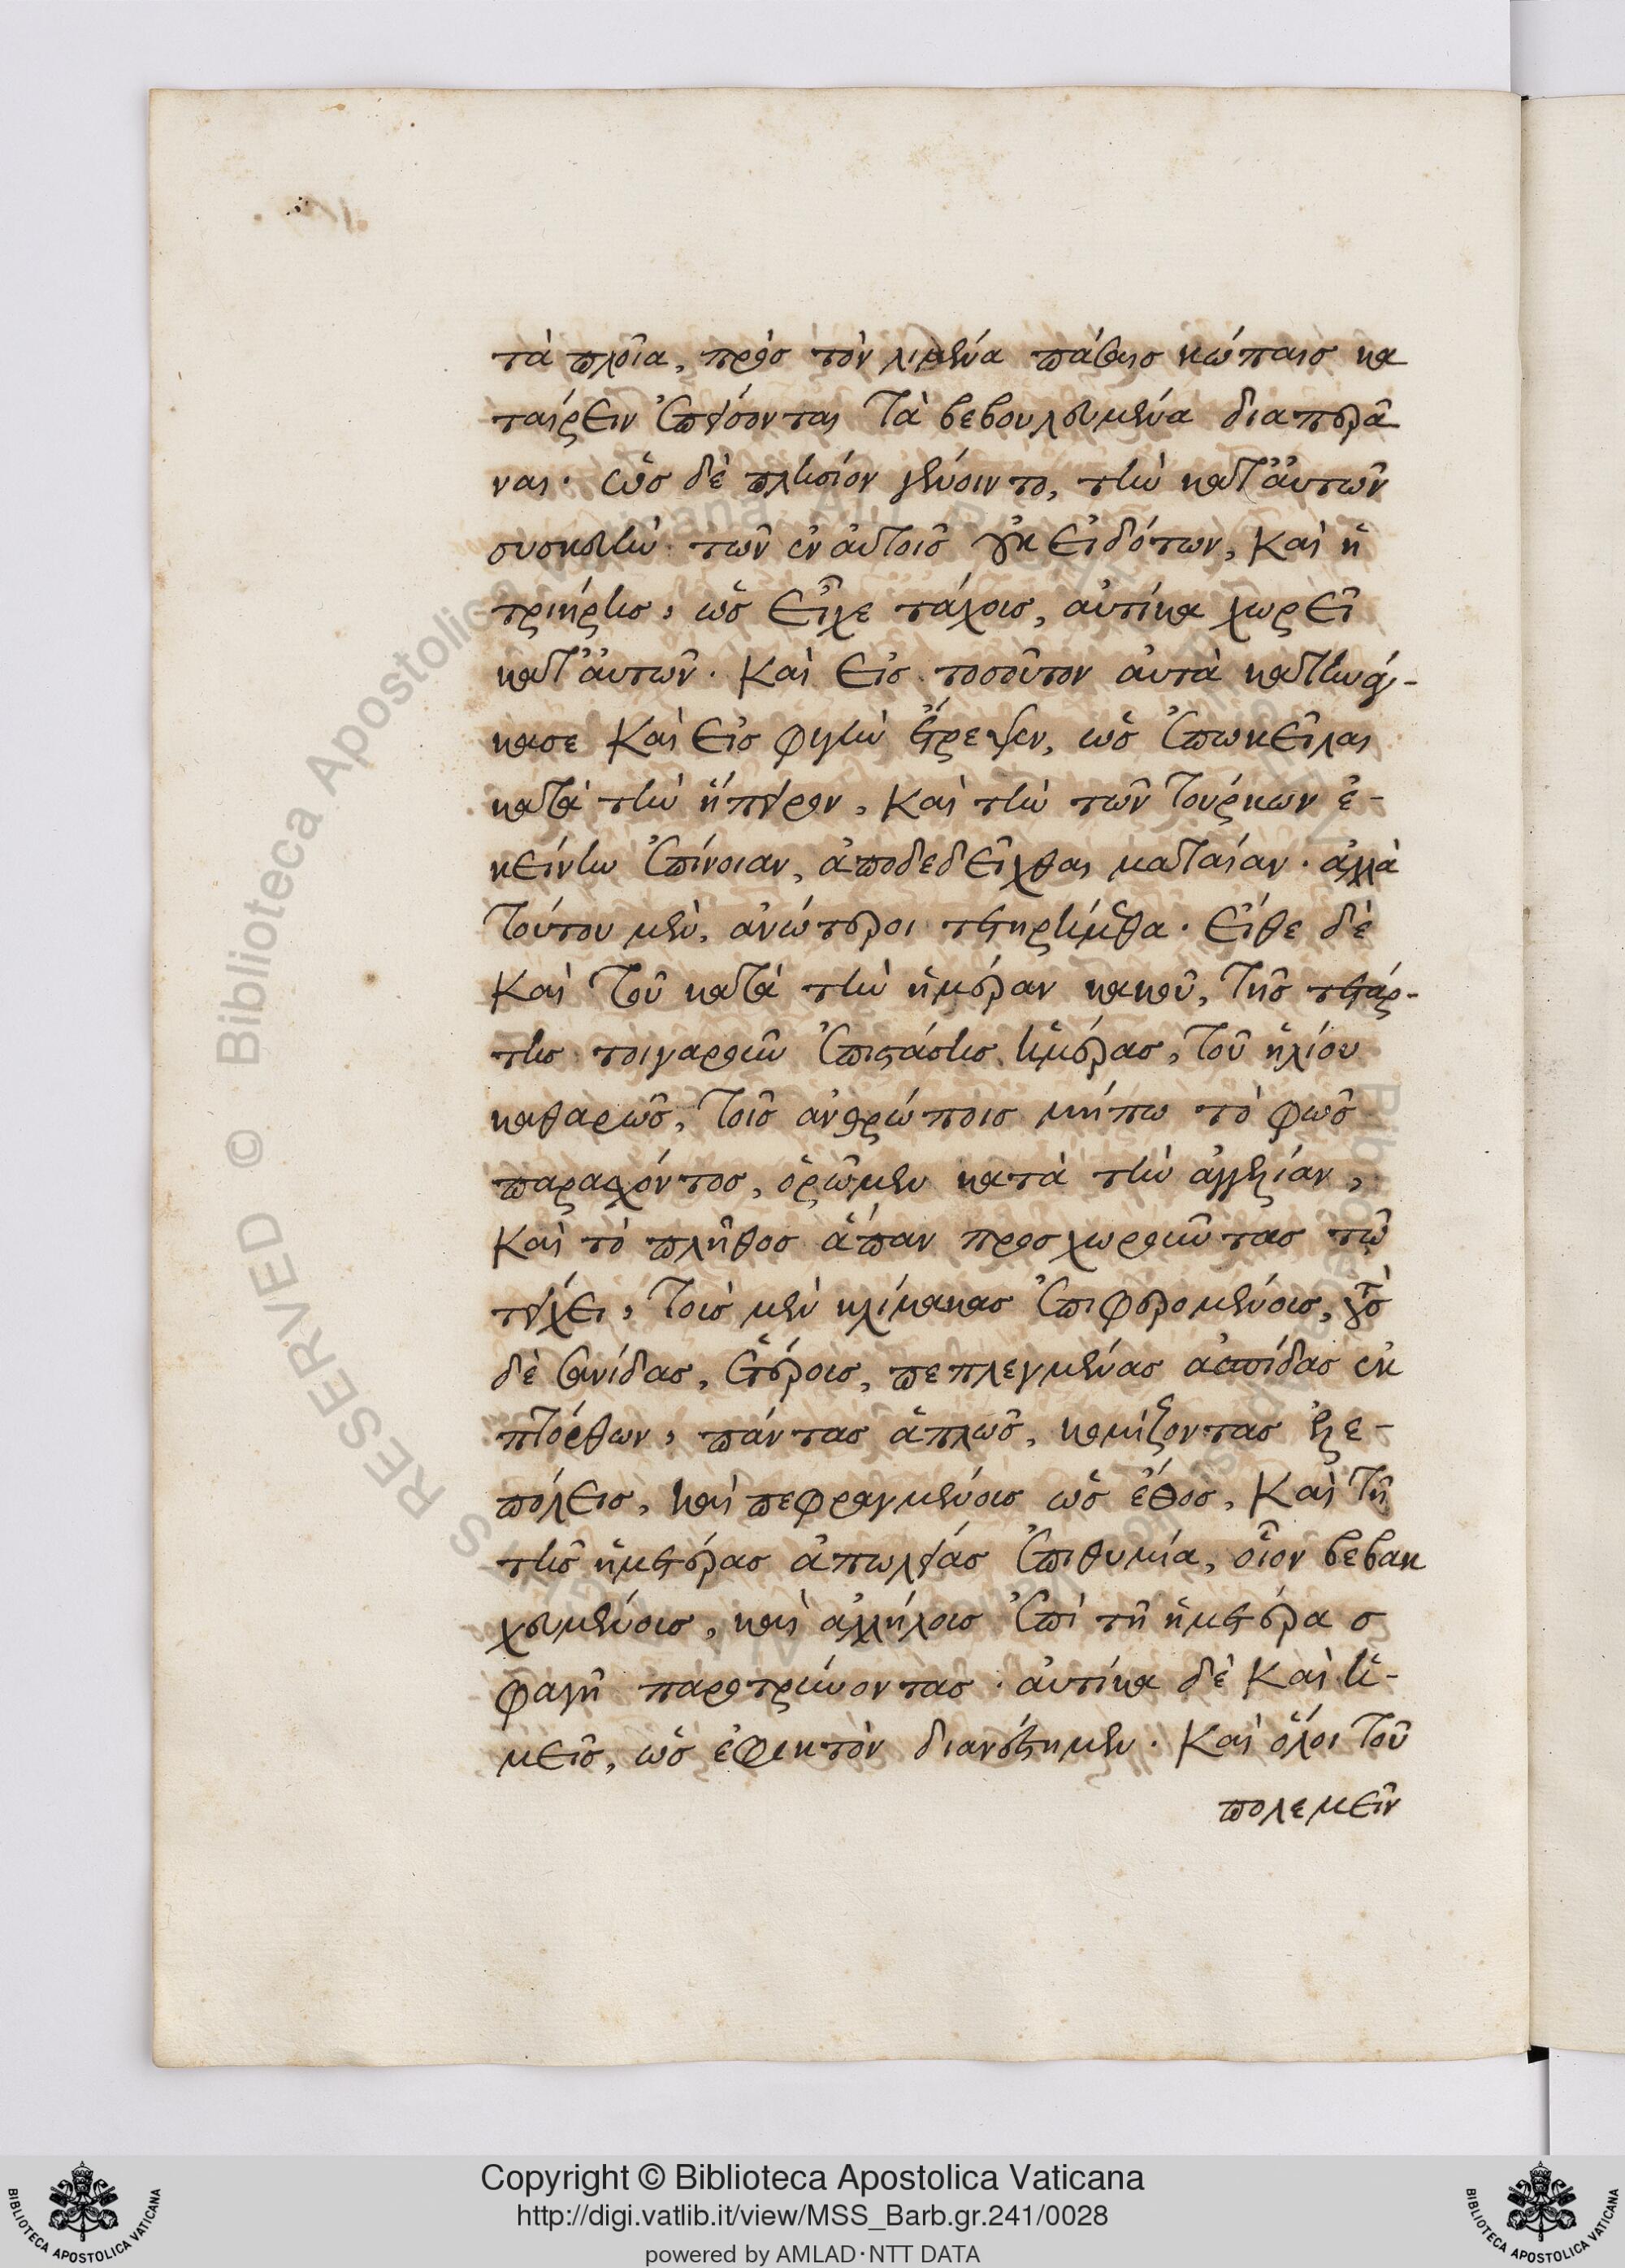 τὰ πλοῖα, πρὸς τὸν λιμένα πάσαις κώπαις κα
ταίρειν ἐπείγονται τὰ βεβουλευμένα διαπερᾶ
ναι. ὡς δὲ πλησίον γένοιντο, τὴν κατ' αὐτῶν
συσκευὴν τῶν ἐν αὐτοῖς οὐκ εἰδότων, καὶ ἡ
τριήρης, ὡς εἶχε τάχους, αὐτίκα χωρεῖ
κατ' αὐτῶν. καὶ εἰς τοσοῦτον αὐτὰ κατηνάγ-
κασε καὶ εἰς φυγὴν ἔτρεψεν, ὡς ἐπωκεῖλαι
κατὰ τὴν ἤπειρον, καὶ τὴν τῶν Τούρκων ἐ-
κείνην ἐπίνοιαν, ἀποδεδεῖχθαι ματαίαν. ἀλλὰ
τούτου μὲν, ἀνώτεροι τετηρήμεθα. εἴθε δὲ
καὶ τοῦ κατὰ τὴν ἡμέραν κακοῦ, τῆς τετάρ-
της τοιγαροῦν ἐπιστάσης ἡμέρας, τοῦ ἡλίου
καθαρῶς, τοῖς ἀνθρώποις μήπω τὸ φῶς
παρασχόντος, ὁρῶμεν κατὰ τὴν ἀγγελίαν,
καὶ τὸ πλῆθος ἅπαν προσχωροῦντας τῷ
τείχει, τοὺς μὲν κλίμακας ἐπιφερομένους, τοὺς
δὲ σανίδας, ἑτέρους, πεπλεγμένας ἀσπίδας ἐκ
πτόρθων, πάντας ἁπλῶς, κομίζοντας ἑλε-
πόλεις, καὶ πεφραγμένους ὡς ἔθος, καὶ τῇ
τῆς ἡμετέρας ἀπωλείας ἐπιθυμίᾳ, οἷον βεβακ
χευμένους, καὶ ἀλλήλους ἐπὶ τῇ ἡμετέρᾳ σ
φαγῇ παροτρύνοντας. αὐτίκα δὲ καὶ ἡ-
μεῖς, ὡς ἐφικτὸν διανέστημεν. καὶ ὅλοι τοῦ
πολεμεῖν
© Biblioteca Apostolica Vaticana ALL RIGHTS RESERVED
Copyright © Biblioteca Apostolica Vaticana
http://digi.vatlib.it/view/MSS_Barb.gr.241/0028
powered by AMLAD·NTT DATA
BIBLIOTECA APOSTOLICA VATICANA
BIBLIOTECA APOSTOLICA VATICANA